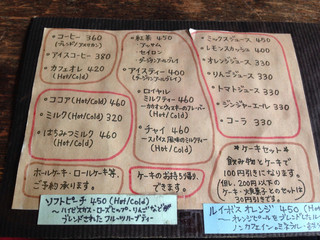 ・コーヒー 360
(ブレンド/アメリカン)
・アイスコーヒー 380
・カフェオレ 420
(Hot/Cold)
・ココア(Hot/Cold) 460
・ミルク(Hot/Cold) 320
・はちみつミルク 460
(Hot/Cold)
ホールケーキ・ロールケーキ等、
ご予約承ります。
・紅茶 450
アッサム
セイロン
ダージリン
・アイスティー 400
・ロイヤル
ミルクティー 460
・チャイ 460
～スパイス風味のミルクティー
(Hot/Cold)
ケーキのお持ち帰り、
できます。
・ミックスジュース 450
・レモンスカッシュ 400
・オレンジジュース 330
・りんごジュース 330
・トマトジュース 330
・ジンジャーエール 330
・コーラ 330
・ケーキセット・
飲み物とケーキで
100円引きになります。
但し、200円以下の
ケーキ・火菓子とのセットは
30円引きです。
ソフトピーチ 450 (Hot/Cold)
～ハイビスカス・ローズヒップ・りんごなどが
ブレンドされたフルーツハーブティー
ルイボス オレンジ 450 (Hot/Cold)